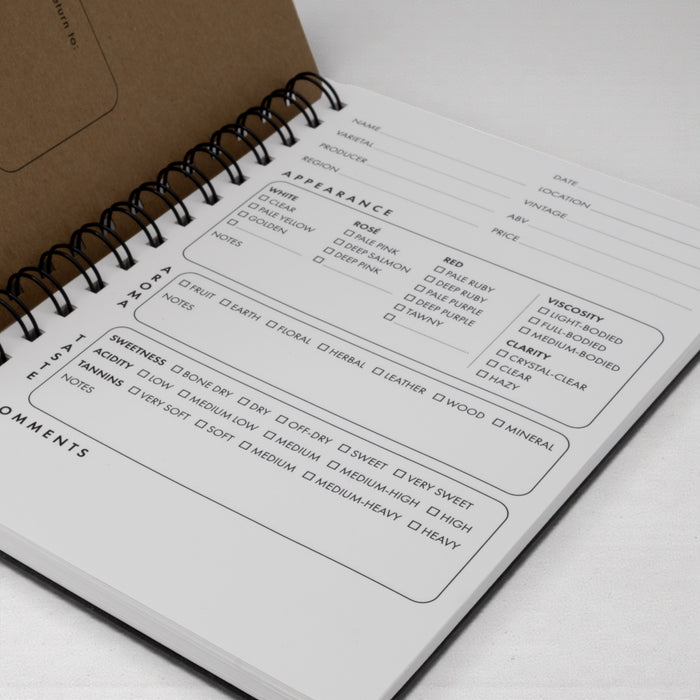 eturn to:
NAME DATE
VARIETAL LOCATION
PRODUCER VINTAGE
REGION ABV
PRICE
APPEARANCE
WHITE
☐ CLEAR
☐ PALE YELLOW
☐ GOLDEN
☐
NOTES
ROSÉ
☐ PALE PINK
☐ DEEP SALMON
☐ DEEP PINK
☐
RED
☐ PALE RUBY
☐ DEEP RUBY
☐ PALE PURPLE
☐ DEEP PURPLE
☐ TAWNY
☐
VISCOSITY
☐ LIGHT-BODIED
☐ FULL-BODIED
☐ MEDIUM-BODIED
CLARITY
☐ CRYSTAL-CLEAR
☐ CLEAR
☐ HAZY
AROMA
☐ FRUIT ☐ EARTH ☐ FLORAL ☐ HERBAL ☐ LEATHER ☐ WOOD ☐ MINERAL
NOTES
TASTE
SWEETNESS ☐ BONE DRY ☐ DRY ☐ OFF-DRY ☐ SWEET ☐ VERY SWEET
ACIDITY ☐ LOW ☐ MEDIUM LOW ☐ MEDIUM ☐ MEDIUM-HIGH ☐ HIGH
TANNINS ☐ VERY SOFT ☐ SOFT ☐ MEDIUM ☐ MEDIUM-HEAVY ☐ HEAVY
NOTES
OMMENTS